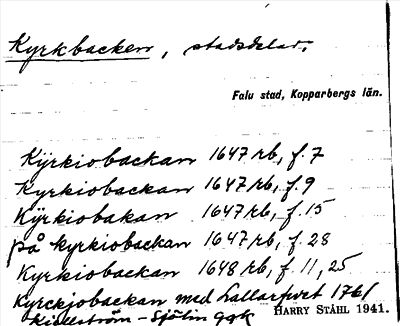 Kyrkbacken, stadsdelar.
Falu stad, Kopparbergs län.
Kÿrkiobackan 1647 rb, f. 7
Kyrkiobackan 1647 rb, f. 9
Kÿrkiobakan 1647 rb, f. 15
på kyrkiobackan 1647 rb, f. 28
Kyrkiobackan 1648 rb, f. 11, 25
Kyrckjobackan med Lallarfvet 1761
Kiellström - Sjölin ggk
HARRY STÅHL 1941.